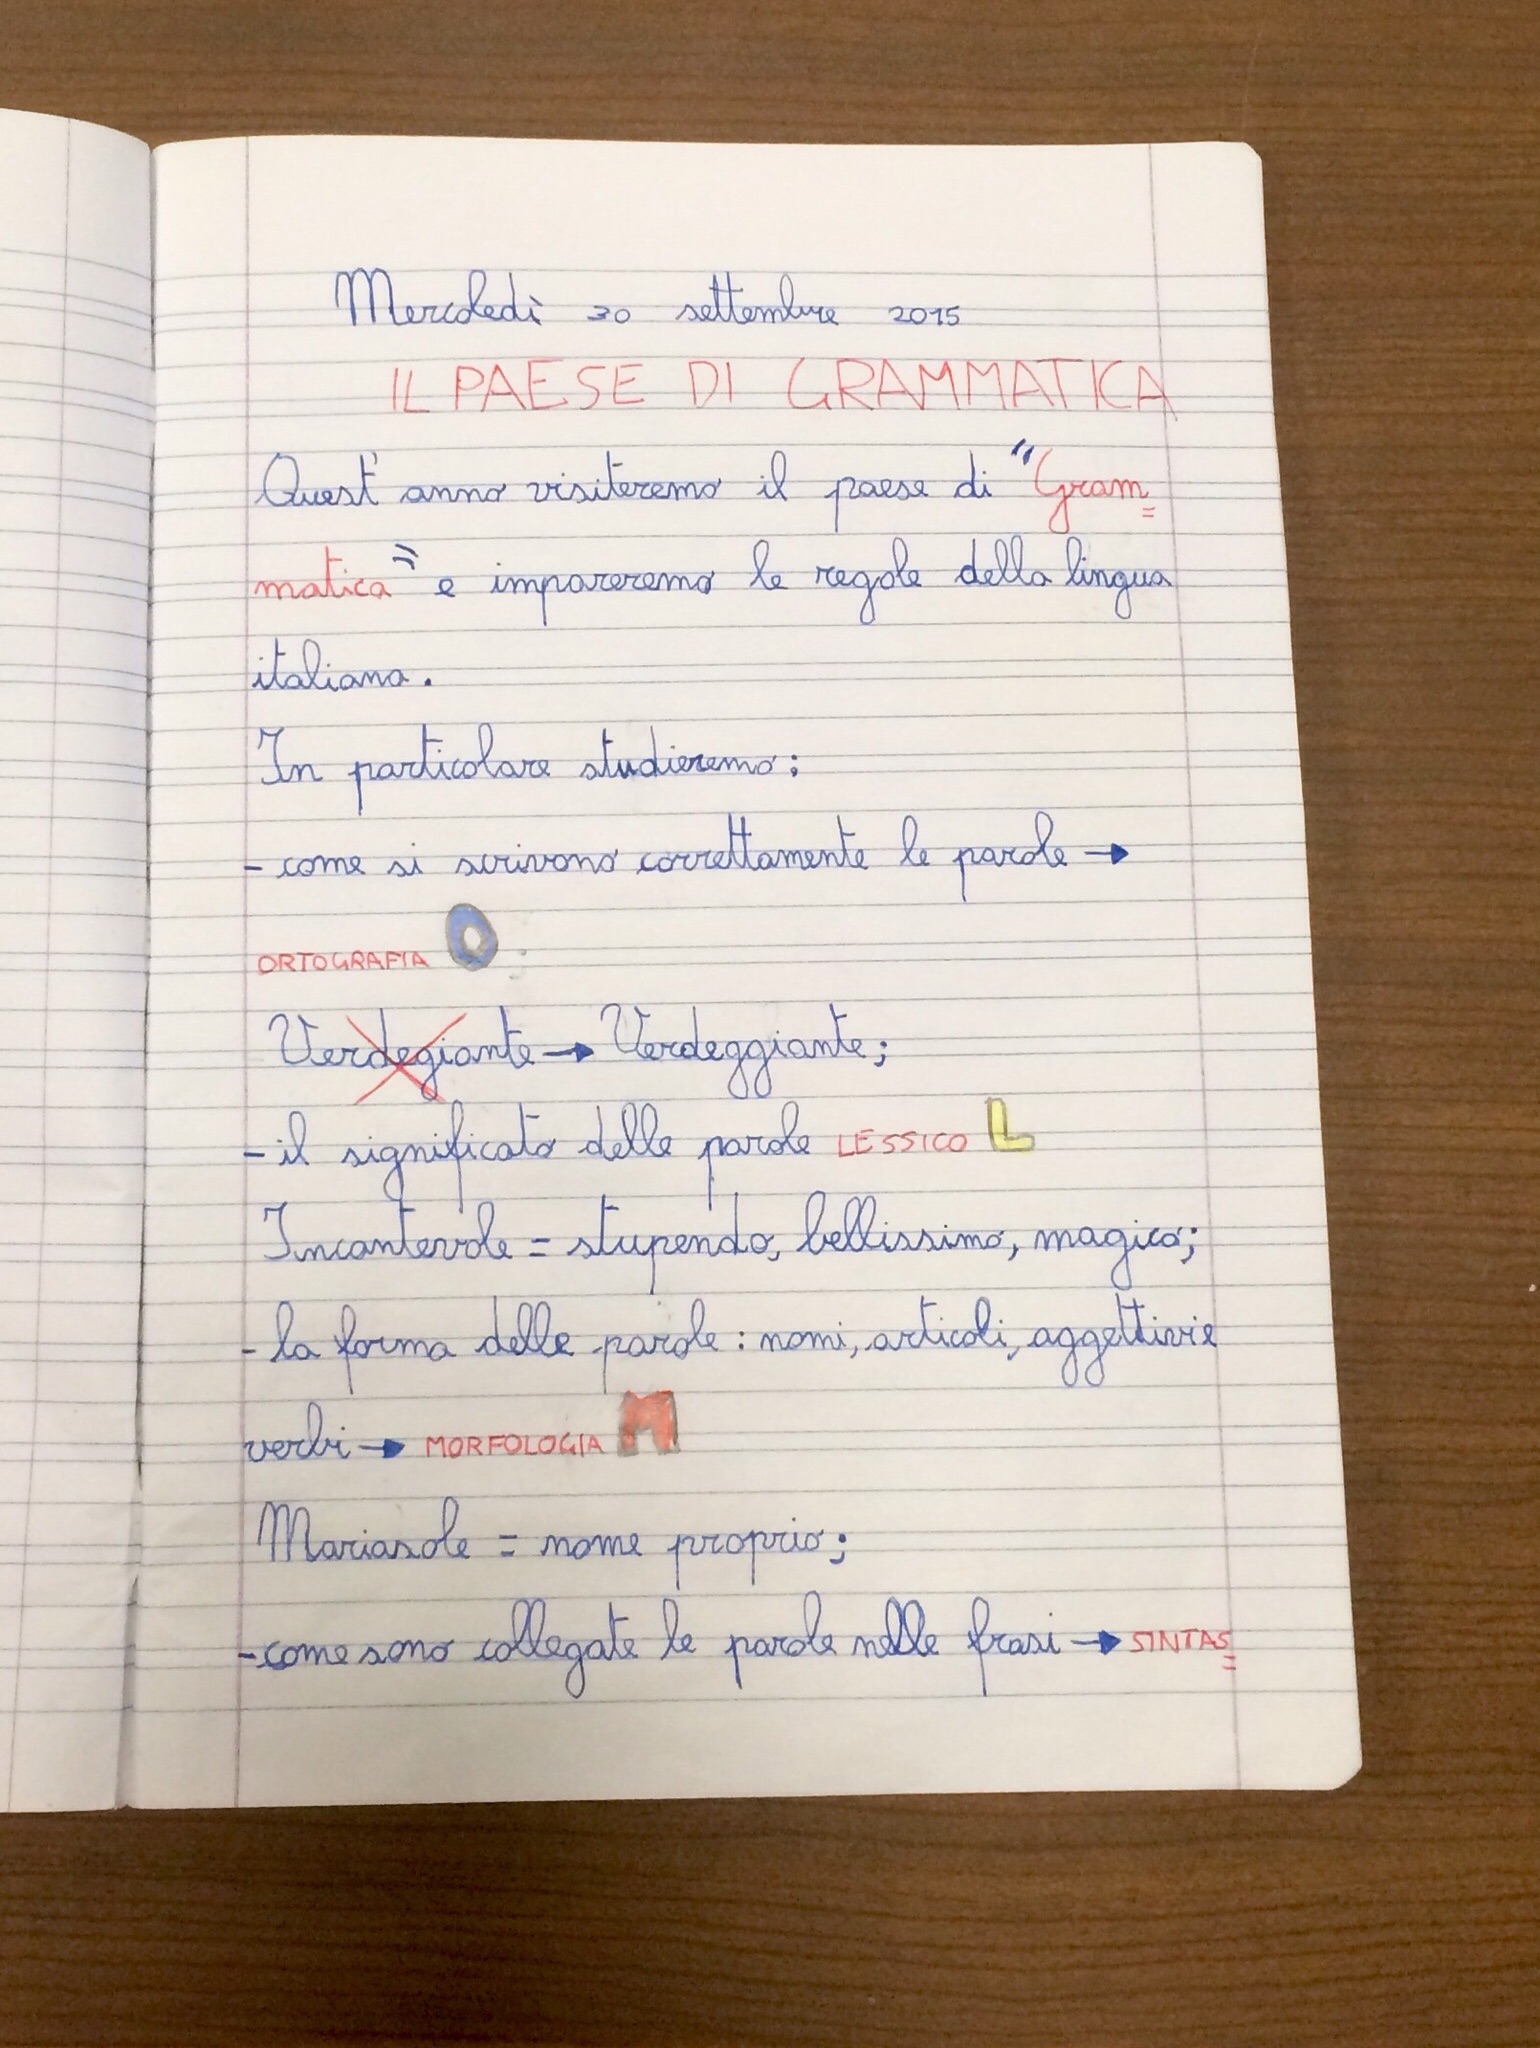 Mercoledì 30 settembre 2015
IL PAESE DI GRAMMATICA
Quest'anno visiteremo il paese di "Gram=
matica" e impareremo le regole della lingua
italiana.
In particolare studieremo:
- come si scrivono correttamente le parole →
ORTOGRAFIA O
Verdegiante → Verdeggiante;
- il significato delle parole LESSICO L
Incantevole = stupendo, bellissimo, magico;
- la forma delle parole: nomi, articoli, aggettivi e
verbi → MORFOLOGIA M
Mariasole = nome proprio;
- come sono collegate le parole nelle frasi → SINTAS=